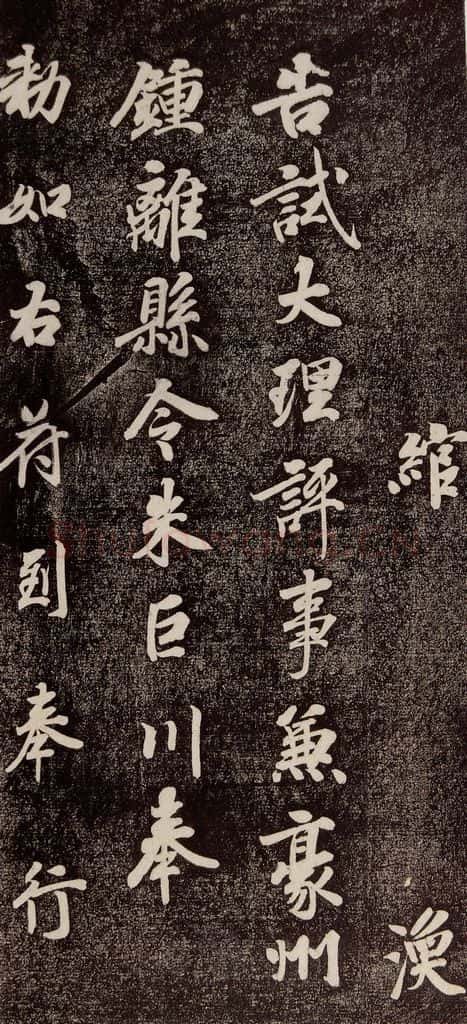 綰 渙
告試大理評事兼豪州
鍾離縣令朱巨川奉
勑如右苻到奉行